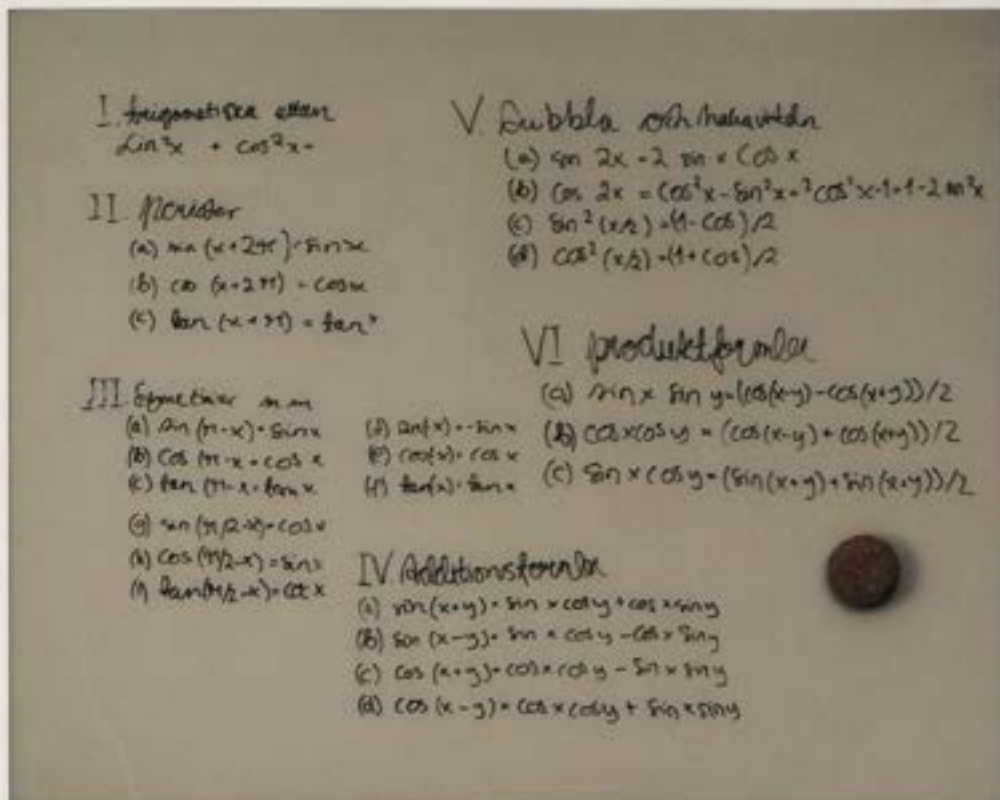 I. trigometiska ettan
sin²x + cos²x =
II perioder
(a) sin (x+2π) = sin x
(b) cos (x+2π) = cos x
(c) tan (x+π) = tan x
III. Symetrier m m
(a) sin (π-x) = sin x
(b) cos (π-x = cos x
(c) tan (π-x = tan x
(d) sin(x) = -sin x
(e) cos(x) = cos x
(f) tan(x) = tan x
(g) sin (π/2-x) = cos x
(h) cos (π/2-x) = sin x
(i) tan(π/2-x) = cot x
IV. Additionsformler
(a) sin(x+y) = sin x cos y + cos x sin y
(b) sin (x-y) = sin x cos y - cos x sin y
(c) cos (x+y) = cos x cos y - sin x sin y
(d) cos (x-y) = cos x cos y + sin x sin y
V. Dubbla och halva vinkeln
(a) sin 2x = 2 sin x cos x
(b) cos 2x = cos²x - sin²x = 2cos²x-1 = 1-2 sin²x
(c) sin² (x/2) = (1-cos)/2
(d) cos² (x/2) = (1+cos)/2
VI produktformler
(a) sin x sin y = (cos(x-y) - cos(x+y))/2
(b) cos x cos y = (cos(x-y) + cos(x+y))/2
(c) sin x cos y = (sin(x+y) + sin(x+y))/2